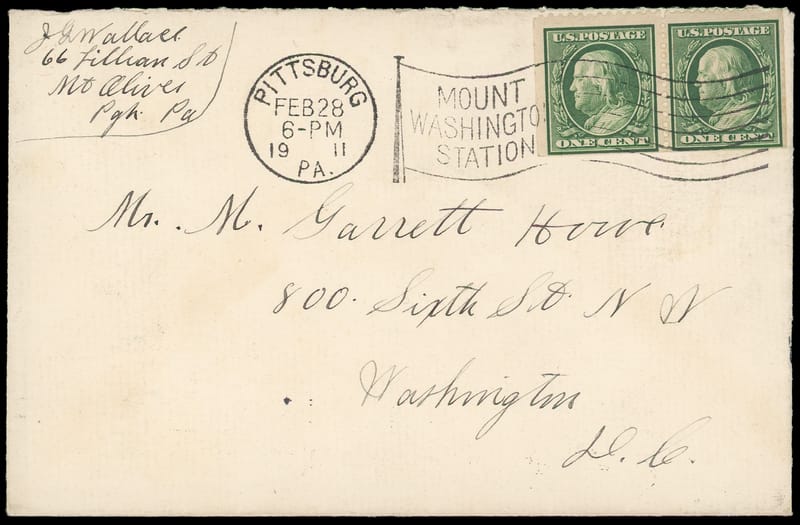 J G Wallace
66 Lillian St
Mt Oliver
Pgh Pa
PITTSBURG
FEB 28
6-PM
19 11
PA.
MOUNT
WASHINGTO
STATION
U.S. POSTAGE
ONE CENT
U.S. POSTAGE
ONE CENT
Mr. M. Garrett Howe
800. Sixth St. N W
Washington
D. C.